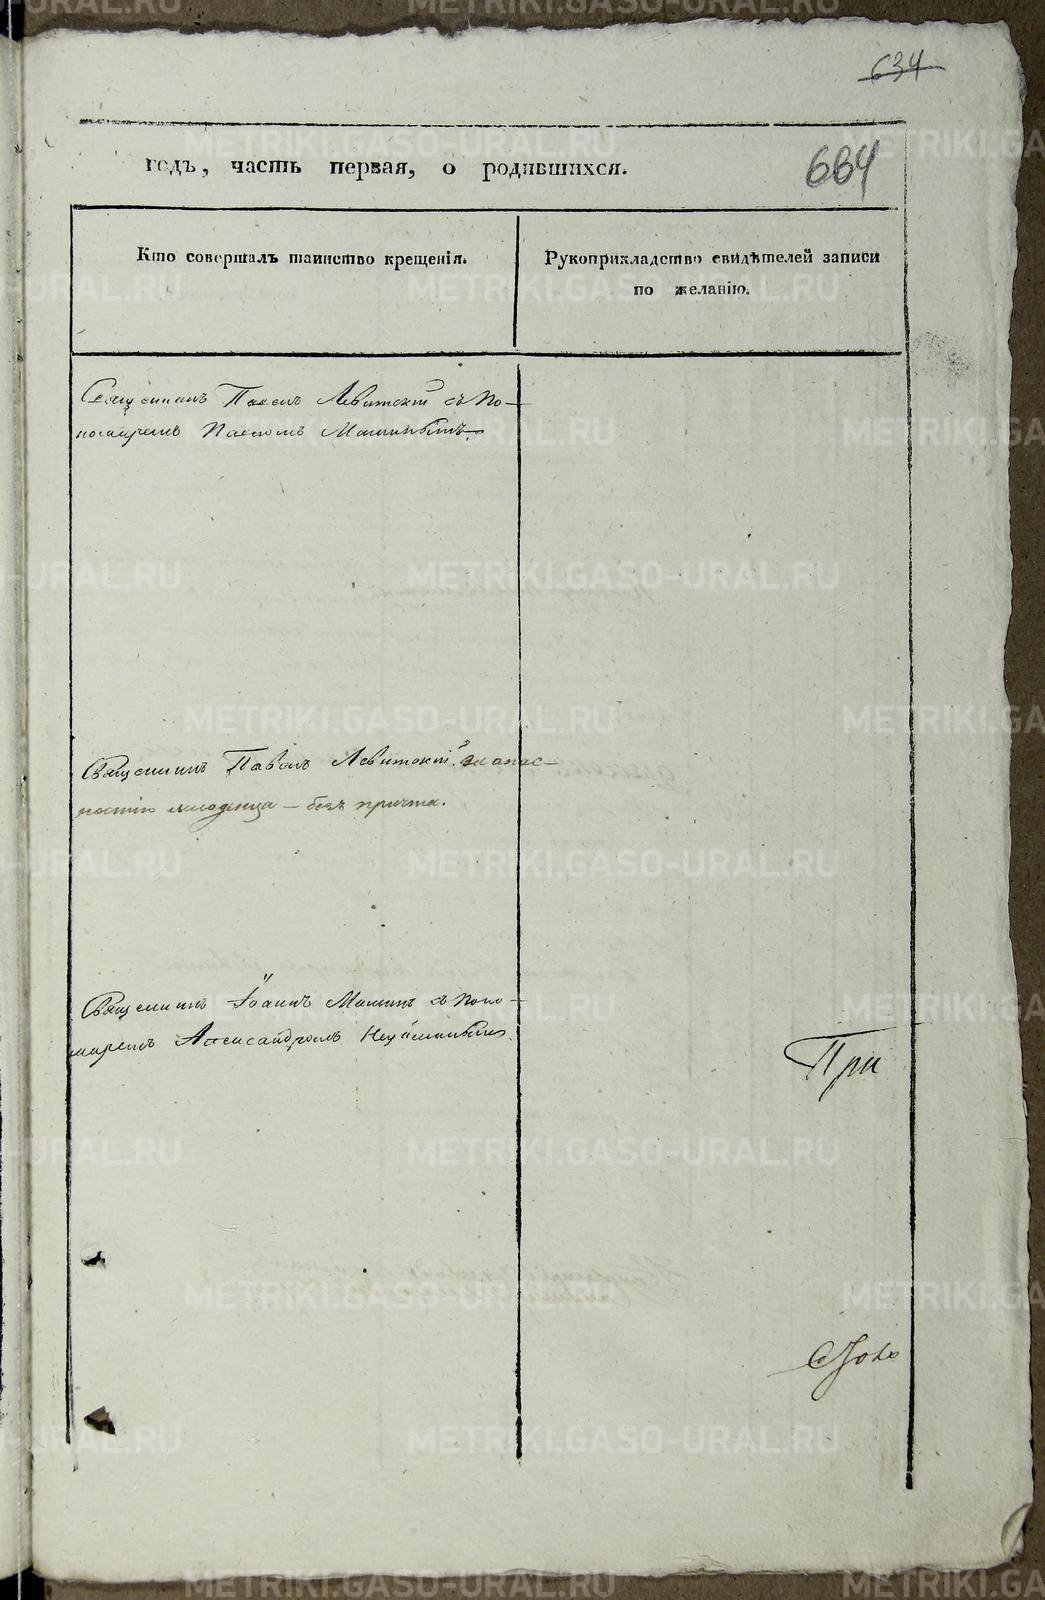 634
годъ, часть первая, о родившихся.
664
Кто совершалъ таинство крещенія.
Рукоприкладство свидѣтелей записи
по желанію.
Священникъ Павелъ Левитскій съ По-
номаремъ Павломъ
Священникъ Павелъ Левитскій за опас-
ностію младенца – безъ причта.
Священникъ Іоаннъ съ поно-
маремъ Александромъ
При
METRIKI.GASO-URAL.RU